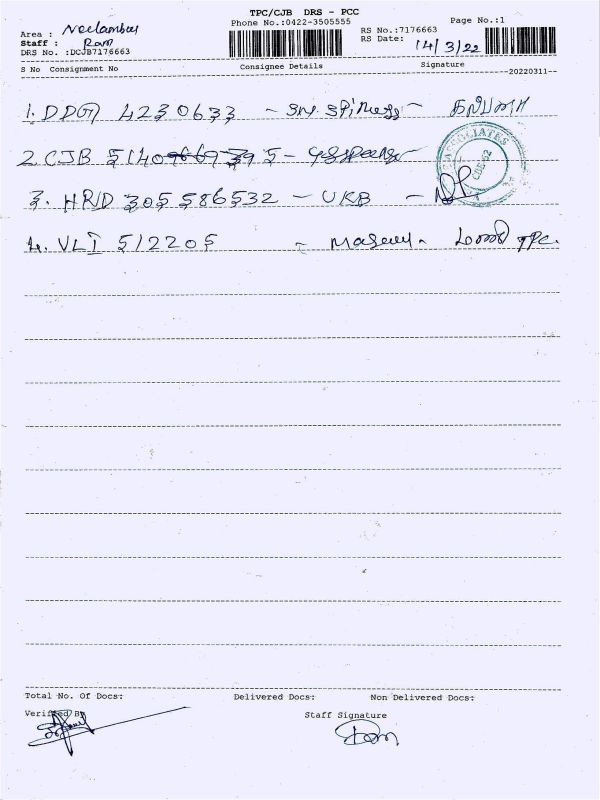 TPC/CJB DRS - PCC
Phone No.:0422-3505555
Page No.:1
Area : Neelambur
Staff : Ram
DRS No. :DCJB7176663
RS No.:7176663
RS Date: 14/3/22
S No Consignment No Consignee Details Signature
--20220311--
1. DDG 4230633 - SN. Spinness -
2 CJB 5140
3. HRD 305586532 - UKB -
4. VLI 512205 -
TPC.
ASSOCIATES
CBE-62
Total No. Of Docs: Delivered Docs: Non Delivered Docs:
Verified By
Staff Signature
Ram